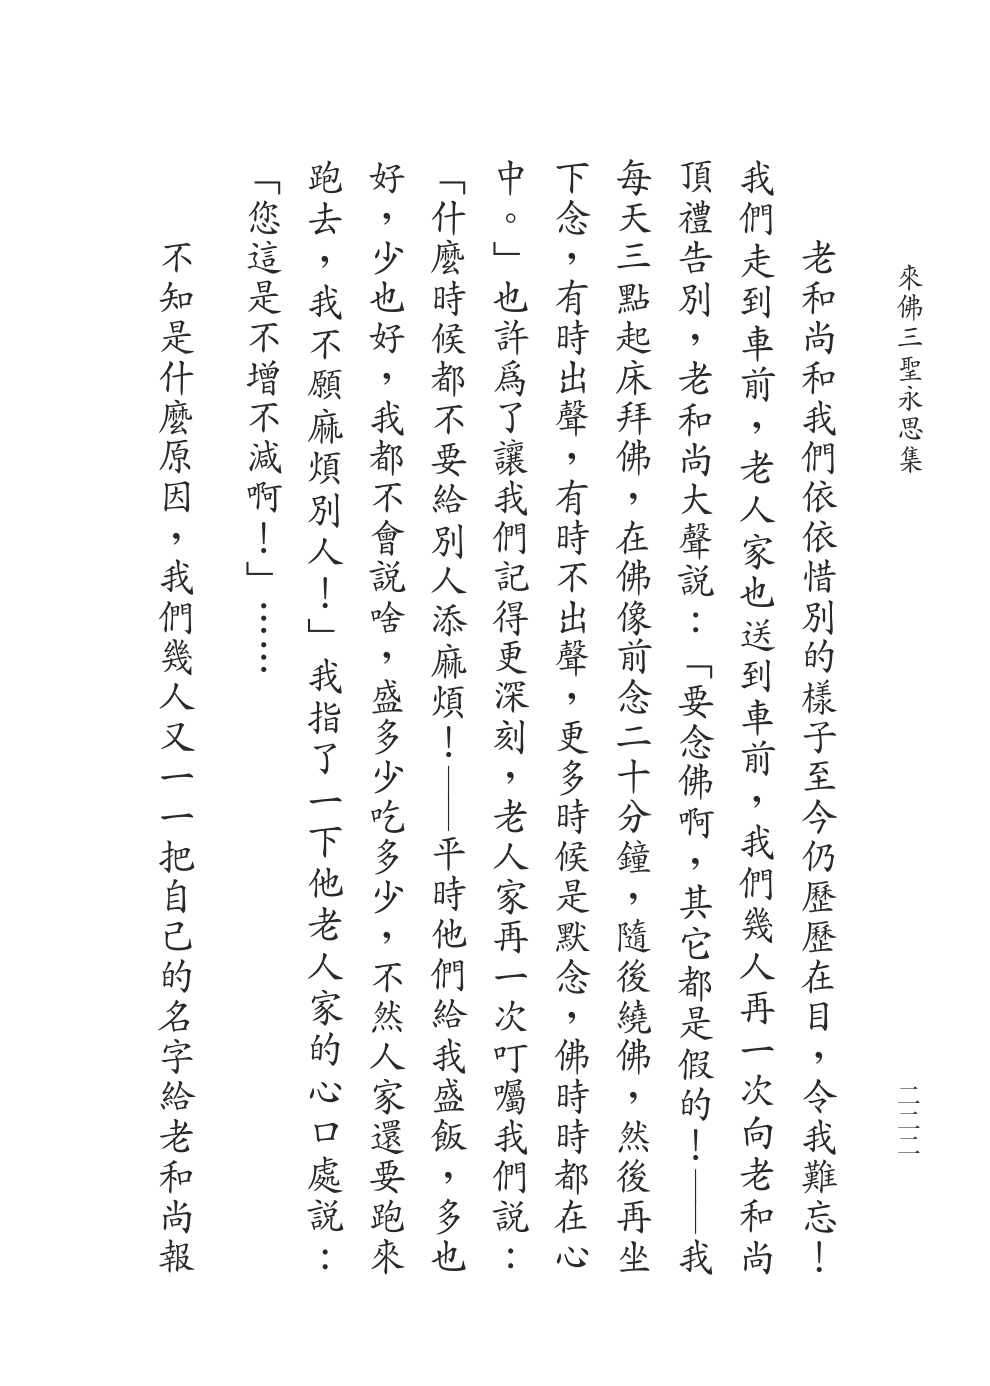 來佛三聖永思集
二二二
老和尚和我們依依惜別的樣子至今仍歷歷在目，令我難忘！
我們走到車前，老人家也送到車前，我們幾人再一次向老和尚
頂禮告別，老和尚大聲說：「要念佛啊，其它都是假的！——我
每天三點起床拜佛，在佛像前念二十分鐘，隨後繞佛，然後再坐
下念，有時出聲，有時不出聲，更多時候是默念，佛時時都在心
中。」也許爲了讓我們記得更深刻，老人家再一次叮囑我們說：
「什麼時候都不要給別人添麻煩！——平時他們給我盛飯，多也
好，少也好，我都不會說啥，盛多少吃多少，不然人家還要跑來
跑去，我不願麻煩別人！」我指了一下他老人家的心口處說：
「您這是不增不減啊！」……
不知是什麼原因，我們幾人又一一把自己的名字給老和尚報